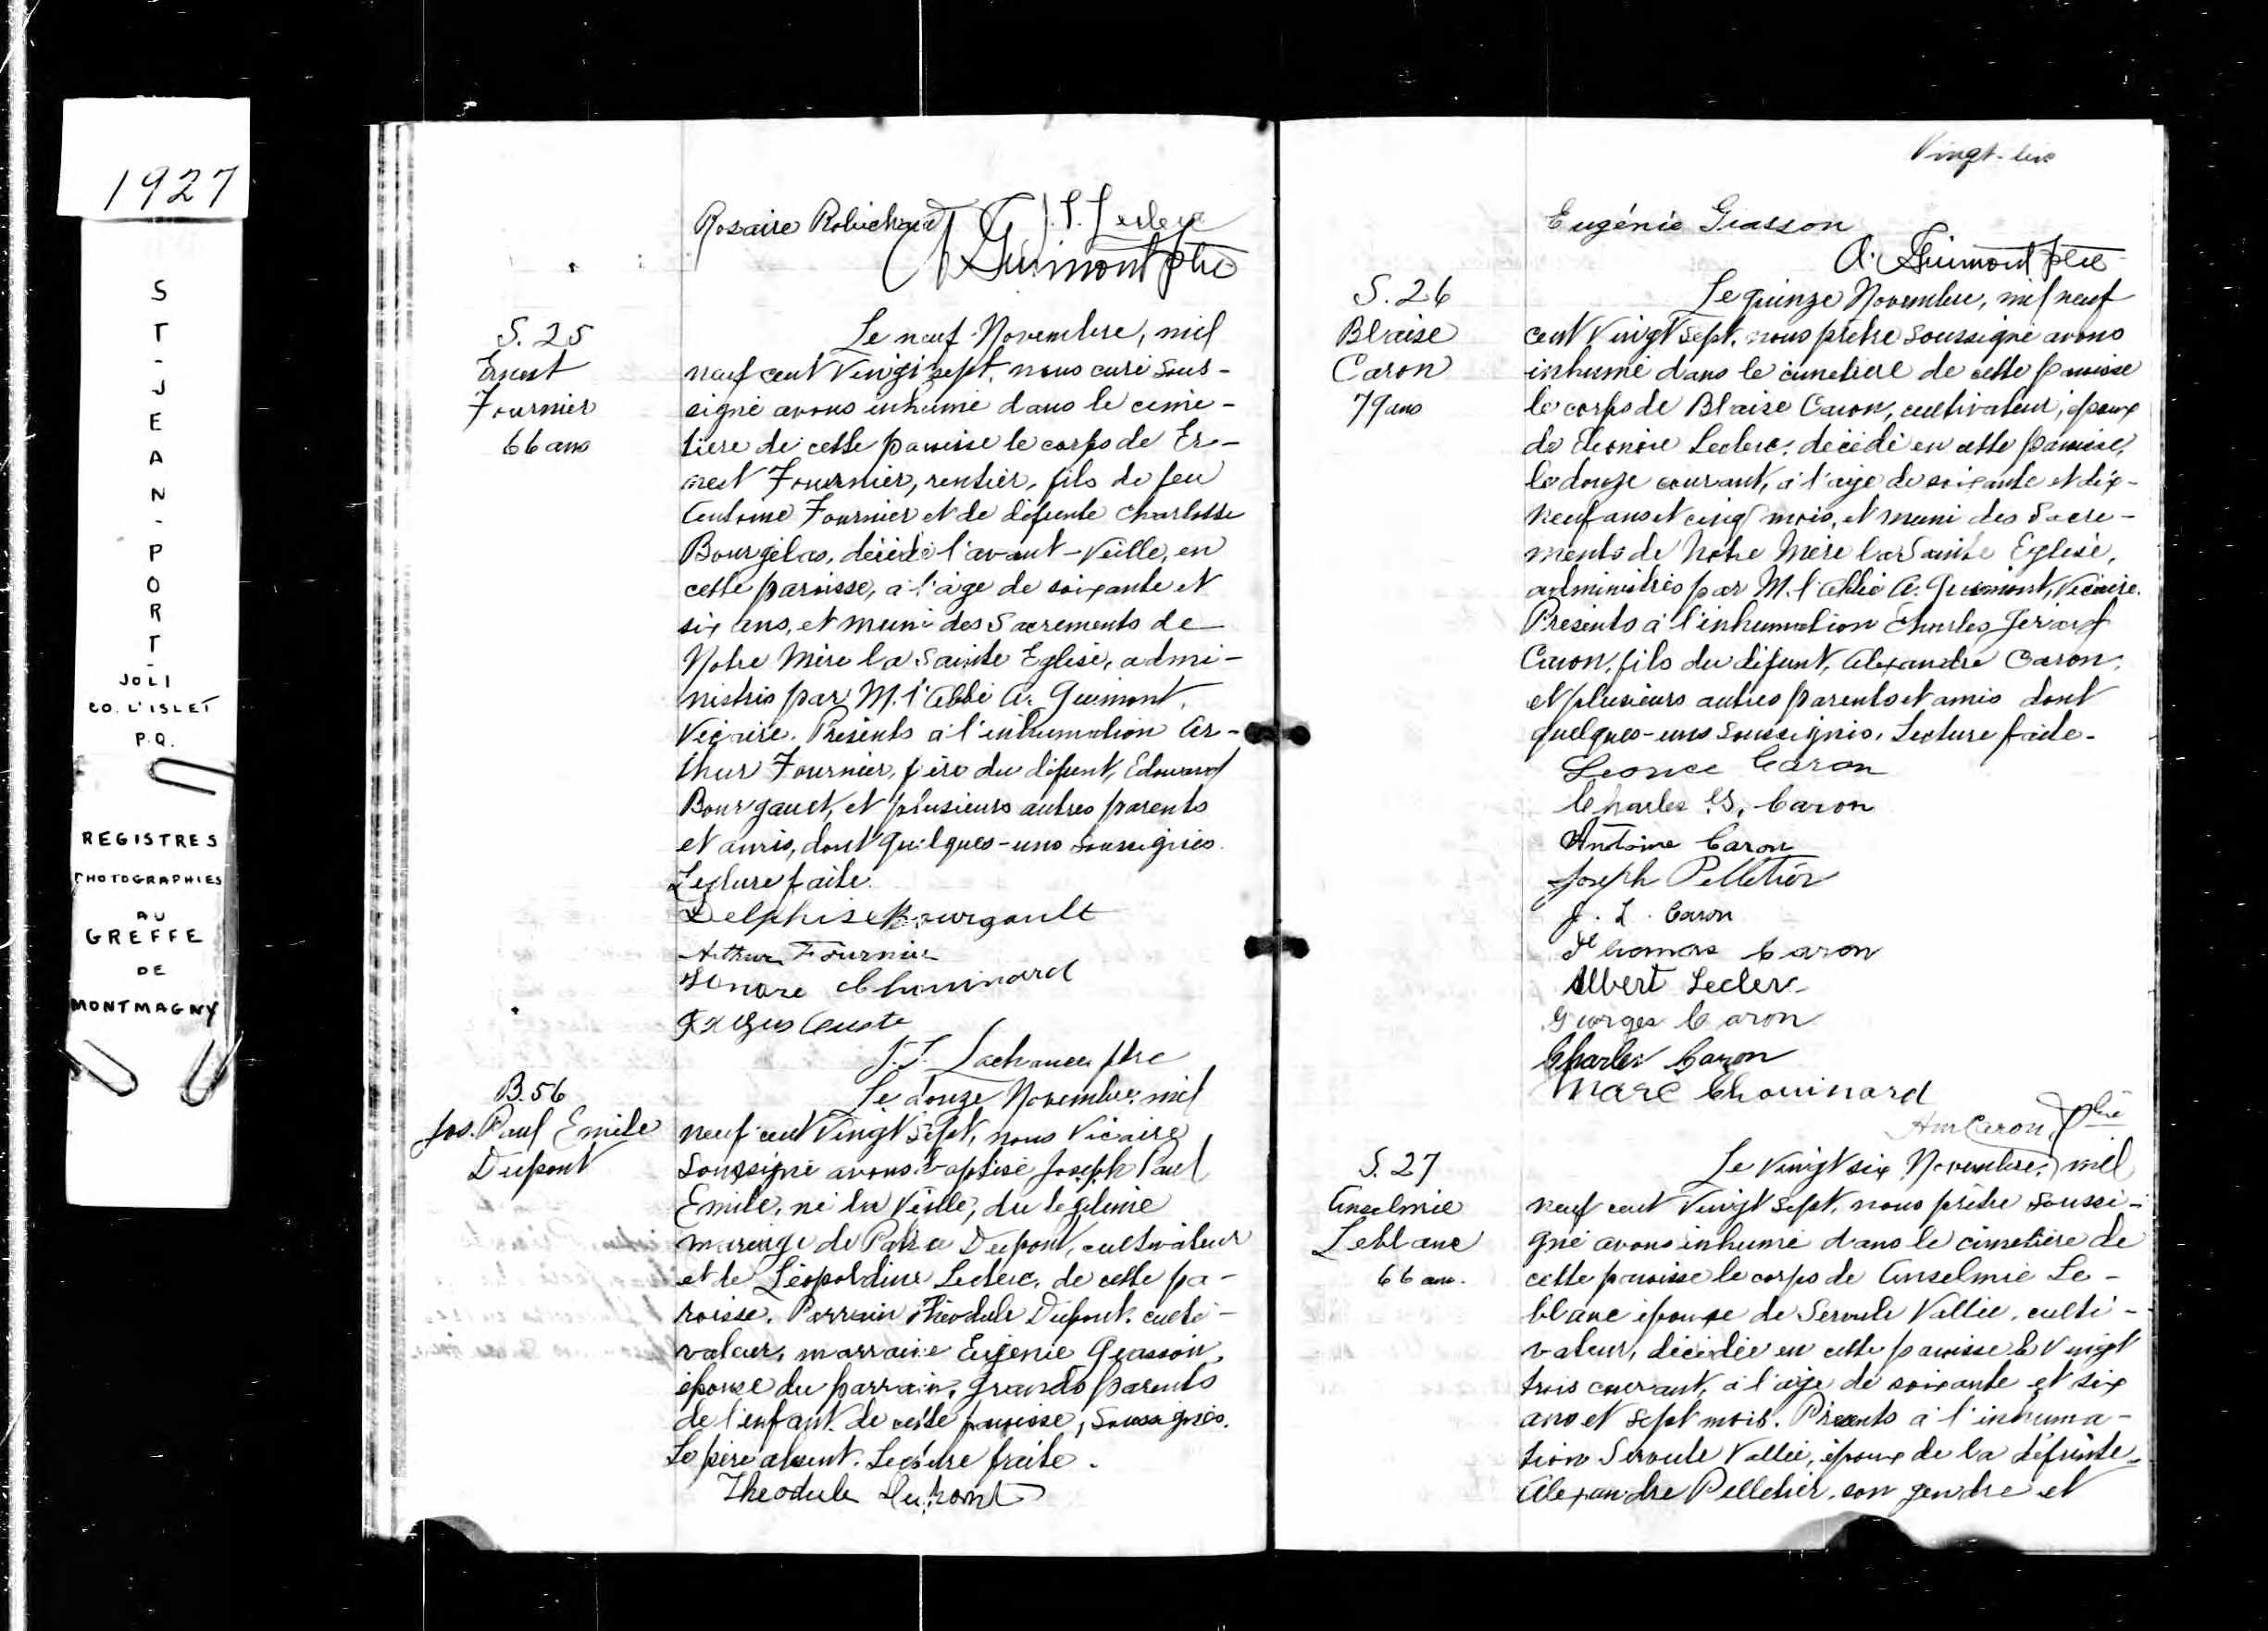 1927
ST-JEAN-PORT-
JOLI
CO. L'ISLET
P.Q.
REGISTRES
PHOTOGRAPHIES
AU
GREFFE
DE
MONTMAGNY
Rosaire Robichaud J. P. Leclerc
A Guimont ptre
S. 25
Ernest
Fournier
66 ans
Le neuf Novembre, mil
neuf cent Vingt sept, nous curé sous-
signé avons inhumé dans le cime-
tiere de cette paroisse le corps de Er-
nest Fournier, rentier, fils de feu
Antoine Fournier et de défunte Charlotte
Bourgélas, décédé l'avant-Veille, en
cette paroisse, à l'âge de soixante et
six ans, et muni des Sacrements de
Notre Mère la Sainte Eglise, admi-
nistrés par M. l'Abbé A. Guimont,
Vicaire. Présents à l'inhumation Ar-
thur Fournier, frère du défunt, Edouard
Bourgault, et plusieurs autres parents
et amis, dont quelques-uns soussignés.
Lecture faite.
Delphis Bourgault
Arthur Fournier
Honore Chouinard
J. J. Lachance ptre
B. 56
Jos. Paul Emile
Dupont
Le douze Novembre, mil
neuf cent Vingt sept, nous Vicaire
Soussigné avons baptisé Joseph Paul
Emile, né la Veille, du légitime
mariage de Dupont, cultivateur
et de Léopoldine Leclerc, de cette pa-
roisse. Parrain Théodule Dupont, culti-
vateur, marraine Eugénie Giasson,
épouse du parrain, grands parents
de l'enfant de cette paroisse, soussignés.
Le père absent. Lecture faite.
Theodule Dupont
Vingt-
Eugénie Giasson
A. Guimont ptre
S. 26
Blaise
Caron
79 ans
Le quinze Novembre, mil neuf
cent Vingt sept, nous prêtre soussigné avons
inhumé dans le cimetière de cette paroisse
le corps de Blaise Caron, cultivateur, époux
de Leclerc, décédé en cette paroisse,
le douze courant, à l'âge de soixante et dix-
neuf ans et cinq mois, et muni des Sacre-
ments de Notre Mère la Sainte Eglise,
administrés par M. l'Abbé A. Guimont, Vicaire.
Présents à l'inhumation Charles
Caron, fils du défunt, Alexandre Caron,
et plusieurs autres parents et amis dont
quelques-uns soussignés. Lecture faite.
Leonce Caron
Charles Caron
Antoine Caron
Joseph Pelletier
J. L. Caron
Thomas Caron
Albert Leclerc
Georges Caron
Charles Caron
Marc Chouinard
Caron, Ptre
S. 27
Anselmie
Leblanc
66 ans.
Le Vingt six Novembre, mil
neuf cent Vingt sept, nous prêtre soussi-
gné avons inhumé dans le cimetière de
cette paroisse le corps de Anselmie Le-
blanc épouse de Vallée, culti-
vateur, décédée en cette paroisse le Vingt
trois courant, à l'âge de soixante et six
ans et sept mois. Présents à l'inhuma-
tion Vallée, époux de la défunte,
Alexandre Pelletier, son gendre et